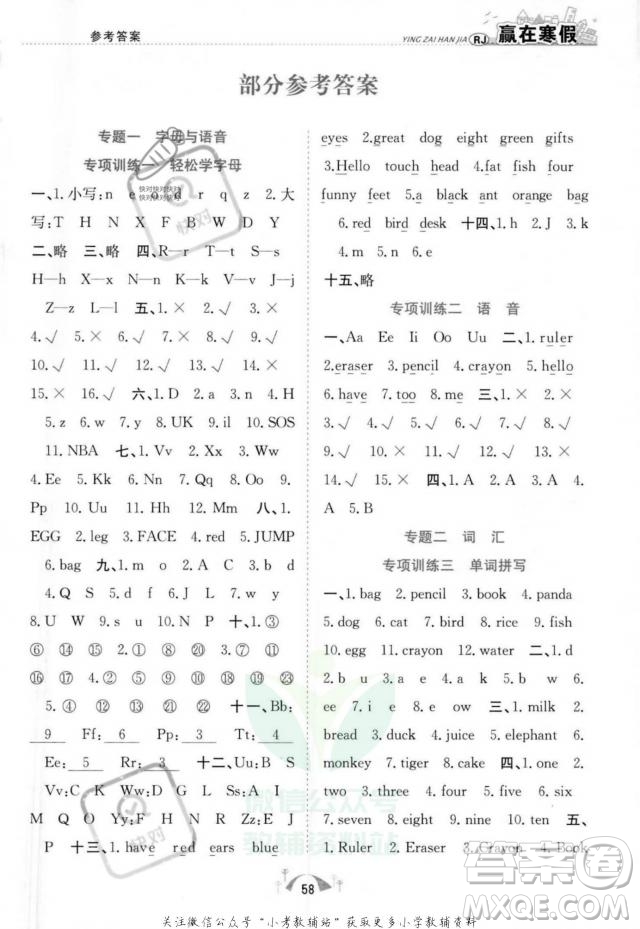 参考答案
YING ZAI HAN JIA RJ 赢在寒假
部分参考答案
专题一 字母与语音
专项训练一 轻松学字母
一、1.小写:n e o d r q z 2.大
写:T H N Y R B D Y
二、略 三、略 四、R—r T—t S—s
H—h Y—y N—n Q—q G—g
X—x L—l 五、1.× 2.× 3.×
4.√ 5.× 6.√ 7.× 8.√ 9.×
10.√ 11.× 12.√ 13.× 14.×
15.× 16.√ 六、1.D 2.a 3.n 4.H
5.z 6.w 7.y 8.UK 9.il 10.SOS
11.NBA 七、1.Vv 2.Aa 3.Nn
4.Ee 5.Xx 6.Yy 7.Rr 8.Qq 9.
Pp 10.Uu 11.Hh 12.Mm 八、1.
EGG 2.leg 3.FACE 4.red 5.JUMP
6.bag 九、1.m o 2.D F 3.c d
4.Q S 5.t u 6.V X 7.f g
8.U W 9.s u 10.W Y 十、1.③
⑥ ⑭ ㉔ 2.① ⑨ ⑪ ⑬ ⑮ ⑱
⑯ ⑰ 3.⑤ ⑦ ⑧ ⑩ ⑫ ⑲ ㉓
5.④ ㉑ ㉒ 十一、Bb:
9 Ff: 6 Pp: 3 Tt: 4
Ee: 5 Rr: 7 十二、Gg:B D
Vv:C Zz:B D Uu:Q W
Hh:A K J Ii:Y Oo:O Rr:R
P 十三、1.have red ears blue
eyes 2.great dog eight eleven
3.Hello touch head school four
funny feet 4.Hi fish white five
5.a black ant orange bag
6.red bird desk 十四、1.h 2.J 3.k
4.m 5.n 6.e
十五、略
专项训练二 语音
一、Aa Ee Ii Oo Uu 二、1.ruler
2.eraser 3.pencil 4.crayon 5.hello
6.have 7.too 8.me 三、1.× 2.×
3.√ 4.√ 5.√ 6.× 7.√ 8.×
9.√ 10.× 11.√ 12.× 13.√
14.× 15.√ 四、1.× 2.√ 3.√
4.× 5.√
专题二 词汇
专项训练三 单词拼写
一、1.bag 2.pencil 3.book 4.panda
5.dog 6.cat 7.bird 8.rice 9.fish
10.egg 11.crayon 12.milk 二、1.a
2.b 3.u e 4.ea 5.a 6.r 7.u
8.ee 9.o 10.e 三、1.elephant
2.duck 3.bird 4.dog 5.pig 6.
monkey 7.tiger 8.cat 四、1.one
2.two 3.three 4.four 5.five 6.six
7.seven 8.eight 9.nine 10.ten 五、
1.Ruler 2.Eraser 3.Crayon 4.Book
58
关注微信公众号“小考教辅站”获取更多小学教辅资料